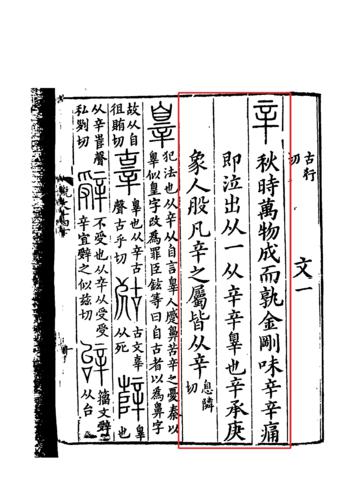 古行切 文一
辛 秋時萬物成而孰金剛味辛辛痛
即泣出从一从辛辛辠也辛承庚
象人股凡辛之屬皆从辛 息鄰切
辠 犯法也从辛从自言辠人蹙鼻苦辛之憂秦以
辠似皇字改為罪臣鉉等曰自古者以為鼻字
故从自
徂賄切 辜 辠也从辛古
聲古乎切 古文辜
从死 辥 辠也
从辛𡴎聲
私列切 辤 不受也从辛从受受
辛宜辤之似兹切 辝 籀文辤
从台